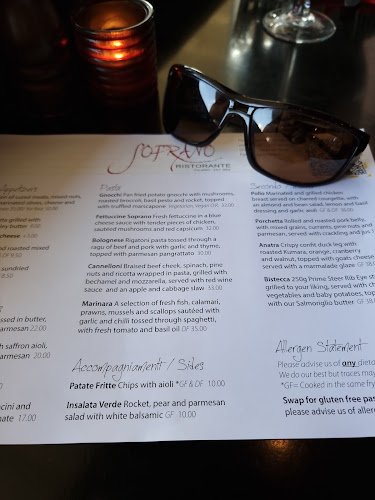 SOPRANO
RISTORANTE
Appetisers
parmesan 22.00
17.00
Pasta
Gnocchi Pan fried potato gnocchi with mushrooms,
roasted broccoli, basil pesto and rocket, topped
with truffled mascarpone
Fettuccine Soprano Fresh fettuccine in a blue
cheese sauce with spinach, onions,
sautéed mushrooms and red capsicum 32.00
Bolognese Rigatoni pasta tossed through a
ragu of beef and pork with garlic and thyme,
topped with parmesan pangrattato 30.00
Cannelloni Braised beef cheek, spinach, pine
nuts and ricotta wrapped in pasta, grilled with
bechamel and mozzarella, served with red wine
sauce and an apple and cabbage slaw 33.00
Marinara A selection of fresh fish, calamari,
prawns, mussels and scallops sautéed with
garlic and chilli tossed through spaghetti,
with fresh tomato and basil oil DF 35.00
Accompagniamenti / Sides
Patate Fritte Chips with aioli *GF & DF 10.00
Insalata Verde Rocket, pear and parmesan
salad with white balsamic GF 10.00
Secondo
Pollo Marinated and grilled chicken
breast served on charred courgette, with
an almond and lemon, and basil
dressing and garlic aioli
Porchetta Rolled and roasted pork belly,
with mixed grains, currants, pine nuts and
parmesan, served with crackling and jus
Anatra Crispy confit duck leg with
roasted kumara, orange, cranberry
and walnut, topped with goats cheese
served with a marmalade glaze GF
Bistecca 250g Prime Steer Rib Eye
grilled to your liking, served with
vegetables and baby potatoes, top
with our Salmoriglio butter GF
Allergen Statement
Please advise us of any
We do our best but traces may
*GF= Cooked in the same fry
Swap for gluten free pas
please advise us of aller